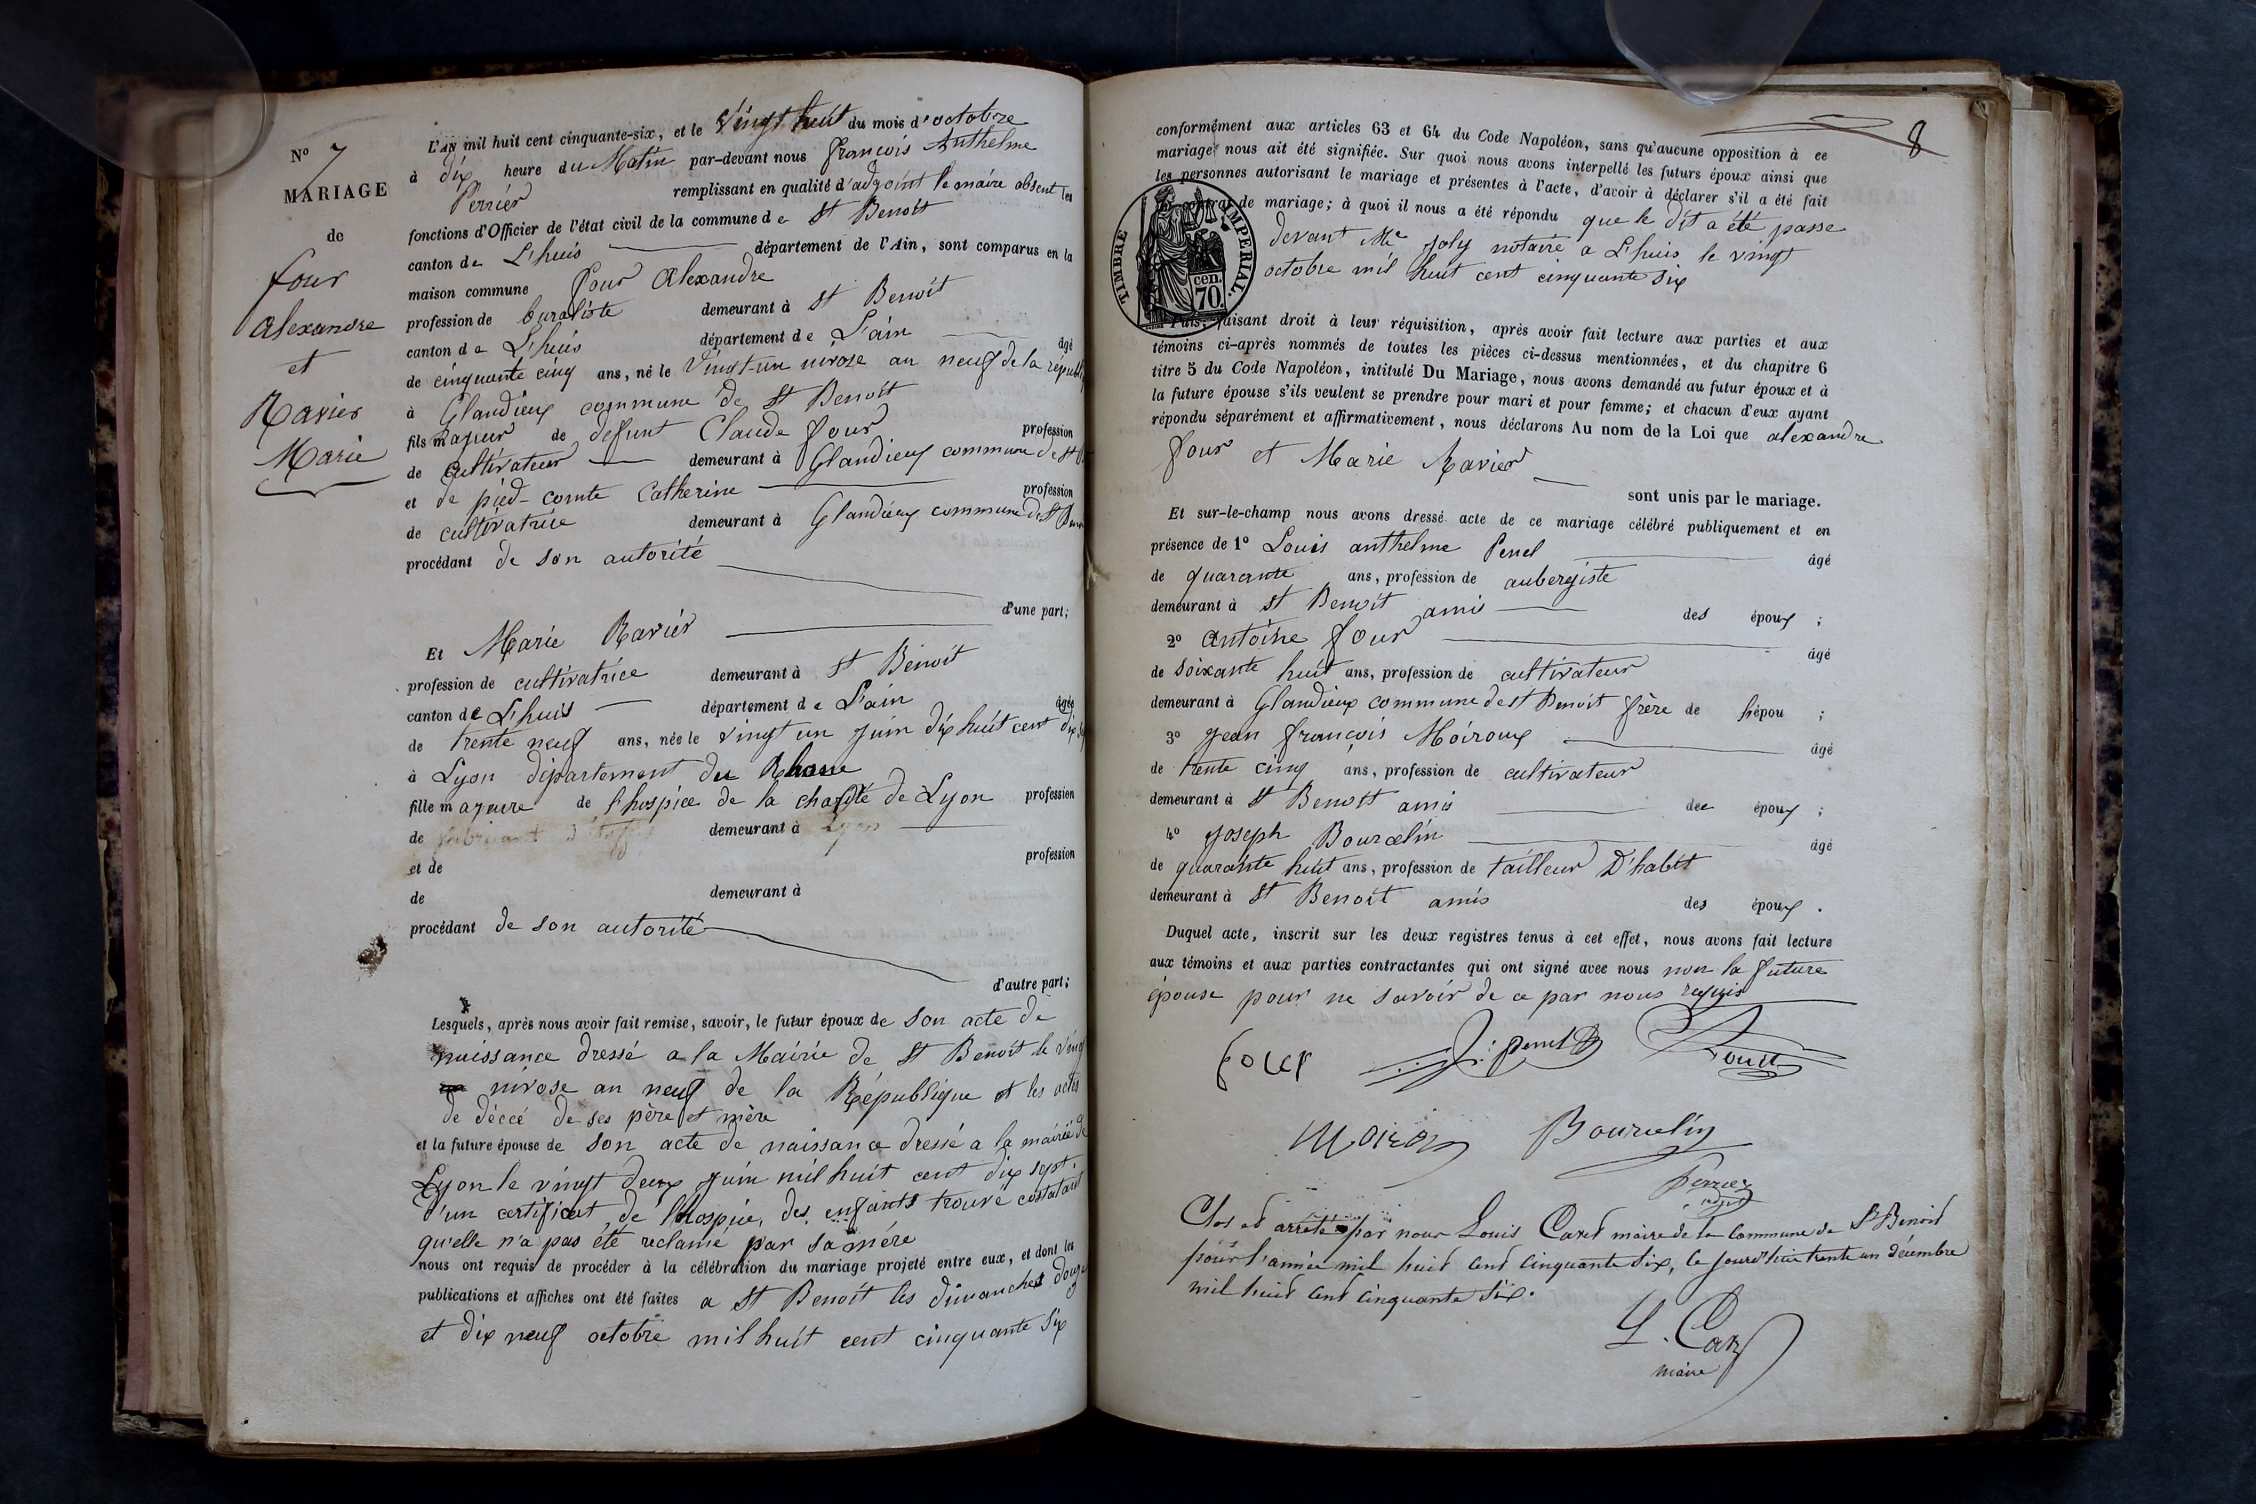 N° 7
MARIAGE
de
four
alexandre
et
Ravier
Marie
L'an mil huit cent cinquante-six, et le Vingt huit du mois d'octobre
à dix heure du Matin par-devant nous françois Anthelme
Perrier remplissant en qualité d'adjoint le maire absent les
fonctions d'Officier de l'état civil de la commune de St Benoit
canton de L'huis département de l'Ain, sont comparus en la
maison commune four Alexandre
profession de buraliste demeurant à St Benoit
canton de L'huis département de L'ain âgé
de cinquante cinq ans, né le Vingt-un nivose an neuf de la républi
à Glandieux commune de St Benoit
fils majeur de defunt Claude four profession
de cultivateur demeurant à Glandieux commune de St B
et de pied-comte Catherine profession
de cultivatrice demeurant à Glandieux commune de St Ben
procédant de son autorité
d'une part;
Et Marie Ravier
profession de cultivatrice demeurant à St Benoit
canton de L'huis département de L'ain âgée
de trente neuf ans, née le vingt un juin dix huit cent dix
à Lyon département du Rhone
fille majeure de l'hospice de la charité de Lyon profession
de demeurant à Lyon
et de profession
de demeurant à
procédant de son autorité
d'autre part;
Lesquels, après nous avoir fait remise, savoir, le futur époux de son acte de
naissance dressé a la Mairie de St Benoit le vingt
nivose an neuf de la République et les actes
de déccé de ses père et mère
et la future épouse de son acte de naissance dressé a la mairie de
Lyon le vingt deux juin mil huit cent dix sept.
d'un certificat de l'hospice, des enfants trouvé costatant
qu'elle n'a pas été réclamé par sa mére
nous ont requis de procéder à la célébration du mariage projeté entre eux, et dont les
publications et affiches ont été faites a St Benoit les dimanches douze
et dix neuf octobre mil huit cent cinquante six
8
conformément aux articles 63 et 64 du Code Napoléon, sans qu'aucune opposition à ce
mariage nous ait été signifiée. Sur quoi nous avons interpellé les futurs époux ainsi que
les personnes autorisant le mariage et présentes à l'acte, d'avoir à déclarer s'il a été fait
contrat de mariage; à quoi il nous a été répondu que le dit a été passe
devant Me Joly notaire a L'huis le vingt
octobre mil huit cent cinquante six
TIMBRE IMPERIAL.
cen.
70.
Puis, faisant droit à leur réquisition, après avoir fait lecture aux parties et aux
témoins ci-après nommés de toutes les pièces ci-dessus mentionnées, et du chapitre 6
titre 5 du Code Napoléon, intitulé Du Mariage, nous avons demandé au futur époux et à
la future épouse s'ils veulent se prendre pour mari et pour femme; et chacun d'eux ayant
répondu séparément et affirmativement, nous déclarons Au nom de la Loi que alexandre
four et Marie Ravier
sont unis par le mariage.
Et sur-le-champ nous avons dressé acte de ce mariage célébré publiquement et en
présence de 1° Louis anthelme Penel âgé
de quarante ans, profession de aubergiste
demeurant à St Benoit amis des époux ;
2° Antoine four âgé
de soixante huit ans, profession de cultivateur
demeurant à Glandieux commune de St Benoit frère de l'épou ;
3° Jean françois Moiroux âgé
de trente cinq ans, profession de cultivateur
demeurant à St Benoit amis des époux ;
4° Joseph Bourcelin âgé
de quarante huit ans, profession de tailleur D'habit
demeurant à St Benoit amis des époux .
Duquel acte, inscrit sur les deux registres tenus à cet effet, nous avons fait lecture
aux témoins et aux parties contractantes qui ont signé avec nous non la future
épouse pour ne savoir de ce par nous requis
four
Bourcelin
Perrier
adjt
Clos et arrêté par nous Louis Caret maire de la Commune de St Benoit
pour l'année mil huit cent cinquante six, ce jourd'hui trente un décembre
mil huit cent cinquante six.
maire